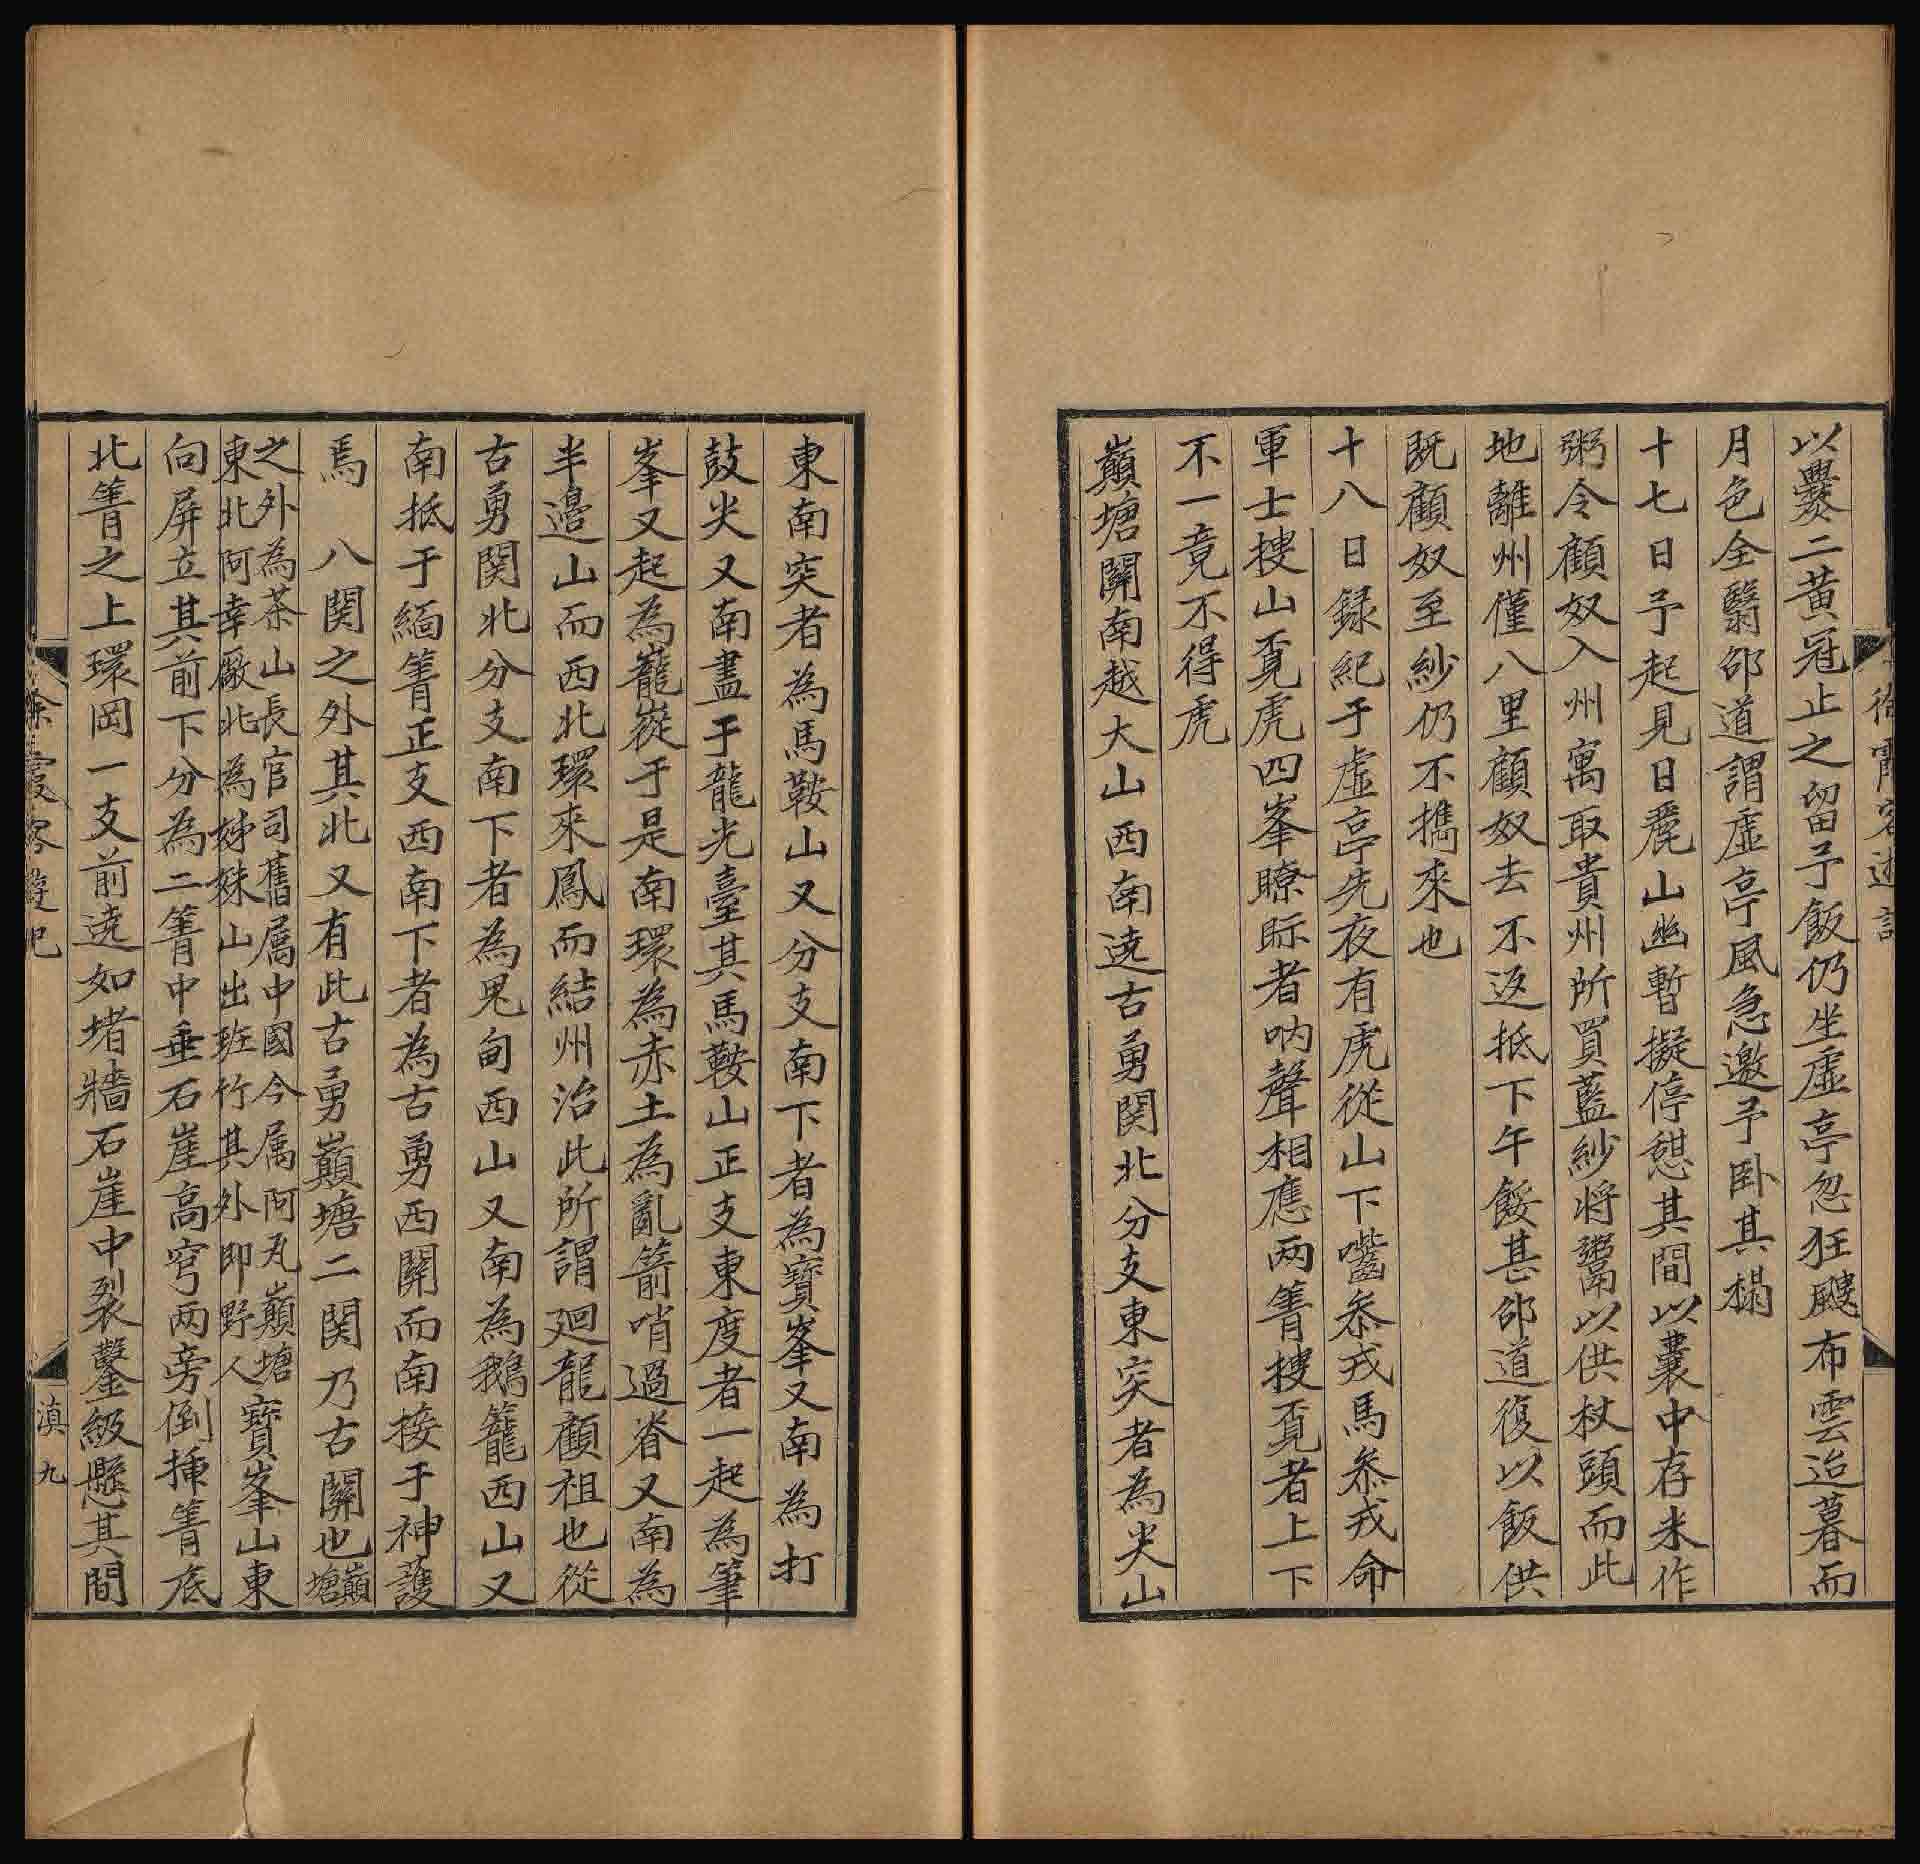 徐霞客遊記
以爨二黃冠止之留予飯仍坐虛亭忽狂飇布雲迨暮而
月色全翳邵道謂虛亭風急邀予卧其榻
十七日予起見日麗山幽暫擬停憇其間以囊中存米作
粥令顧奴入州寓取貴州所買藍紗將鬻以供杖頭而此
地離州僅八里顧奴去不返抵下午餒甚邵道復以飯供
既顧奴至紗仍不攜來也
十八日録紀于虛亭先夜有虎從山下嚙叅戎馬叅戎命
軍士搜山覔虎四峯瞭眎者吶聲相應兩箐搜覔者上下
不一竟不得虎
巔塘關南越大山西南遶古勇関北分支東突者為尖山
東南突者為馬鞍山又分支南下者為寶峯又南為打
鼓尖又南盡于龍光臺其馬鞍山正支東度者一起為筆
峯又起為巃嵸于是南環為赤土為亂箭哨過脊又南為
半邉山而西北環來鳳而結州治此所謂廻龍顧祖也從
古勇関北分支南下者為鬼甸西山又南為鵝籠西山又
南抵于緬箐正支西南下者為古勇西關而南接于神護
焉　八関之外其北又有此古勇巔塘二関乃古關也巔塘
之外為茶山長官司舊屬中國今属阿瓦巔塘
東北阿幸厰北為姊妹山出班竹其外即野人寶峯山東
向屏立其前下分為二箐中垂石崖高穹两旁倒揷箐底
北箐之上環岡一支前遶如堵牆石崖中裂鑿級懸其間
徐霞客遊記
滇九